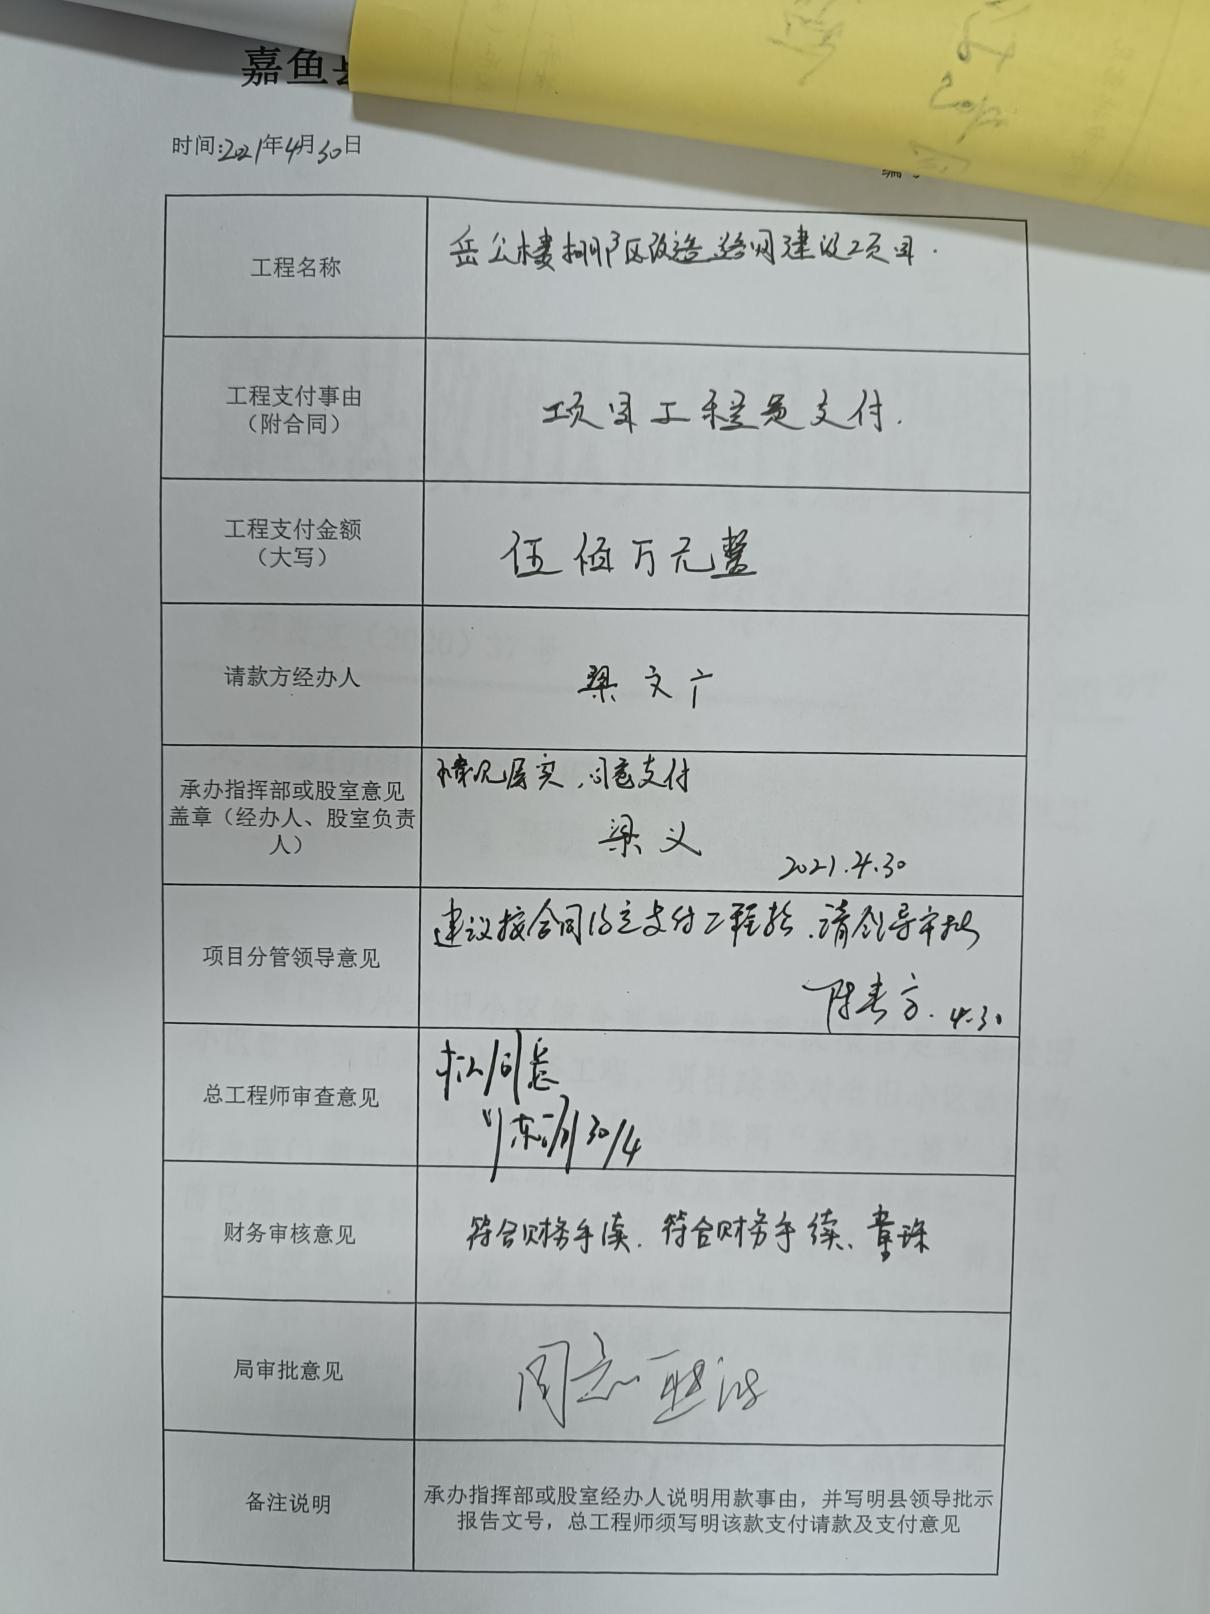 嘉鱼县
时间:2021年4月30日
工程名称
岳公楼棚户区改造路网建设项目.
工程支付事由
（附合同）
项目工程款支付.
工程支付金额
（大写）
伍佰万元整
请款方经办人
梁文广
承办指挥部或股室意见
盖章（经办人、股室负责
人）
情况属实,同意支付
梁义
2021.4.30
项目分管领导意见
建议按合同约定支付工程款.请领导审批
陈春方.4.30
总工程师审查意见
拟同意
30/4
财务审核意见
符合财务手续.符合财务手续、章珠
局审批意见
同意
备注说明
承办指挥部或股室经办人说明用款事由，并写明县领导批示
报告文号，总工程师须写明该款支付请款及支付意见